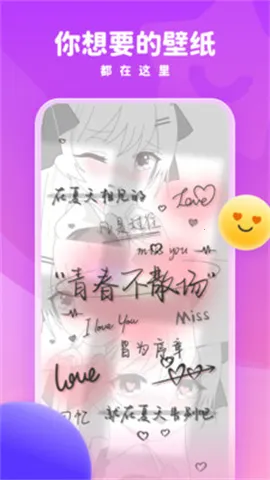 你想要的壁纸
都在这里
在夏天相见的
Love
凡是过往
miss you
“青春不散场”
I love You
Miss
皆为序章
love
回忆
就在夏天告别吧